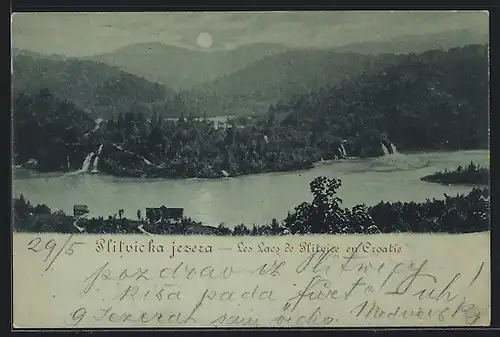 29/5 Plitvička jezera. – Les Lacs de Plitvice en Croatie
pozdrav iz Plitvicy
Kiša pada fürt. Uh!
9 Jezerah sam vidio.